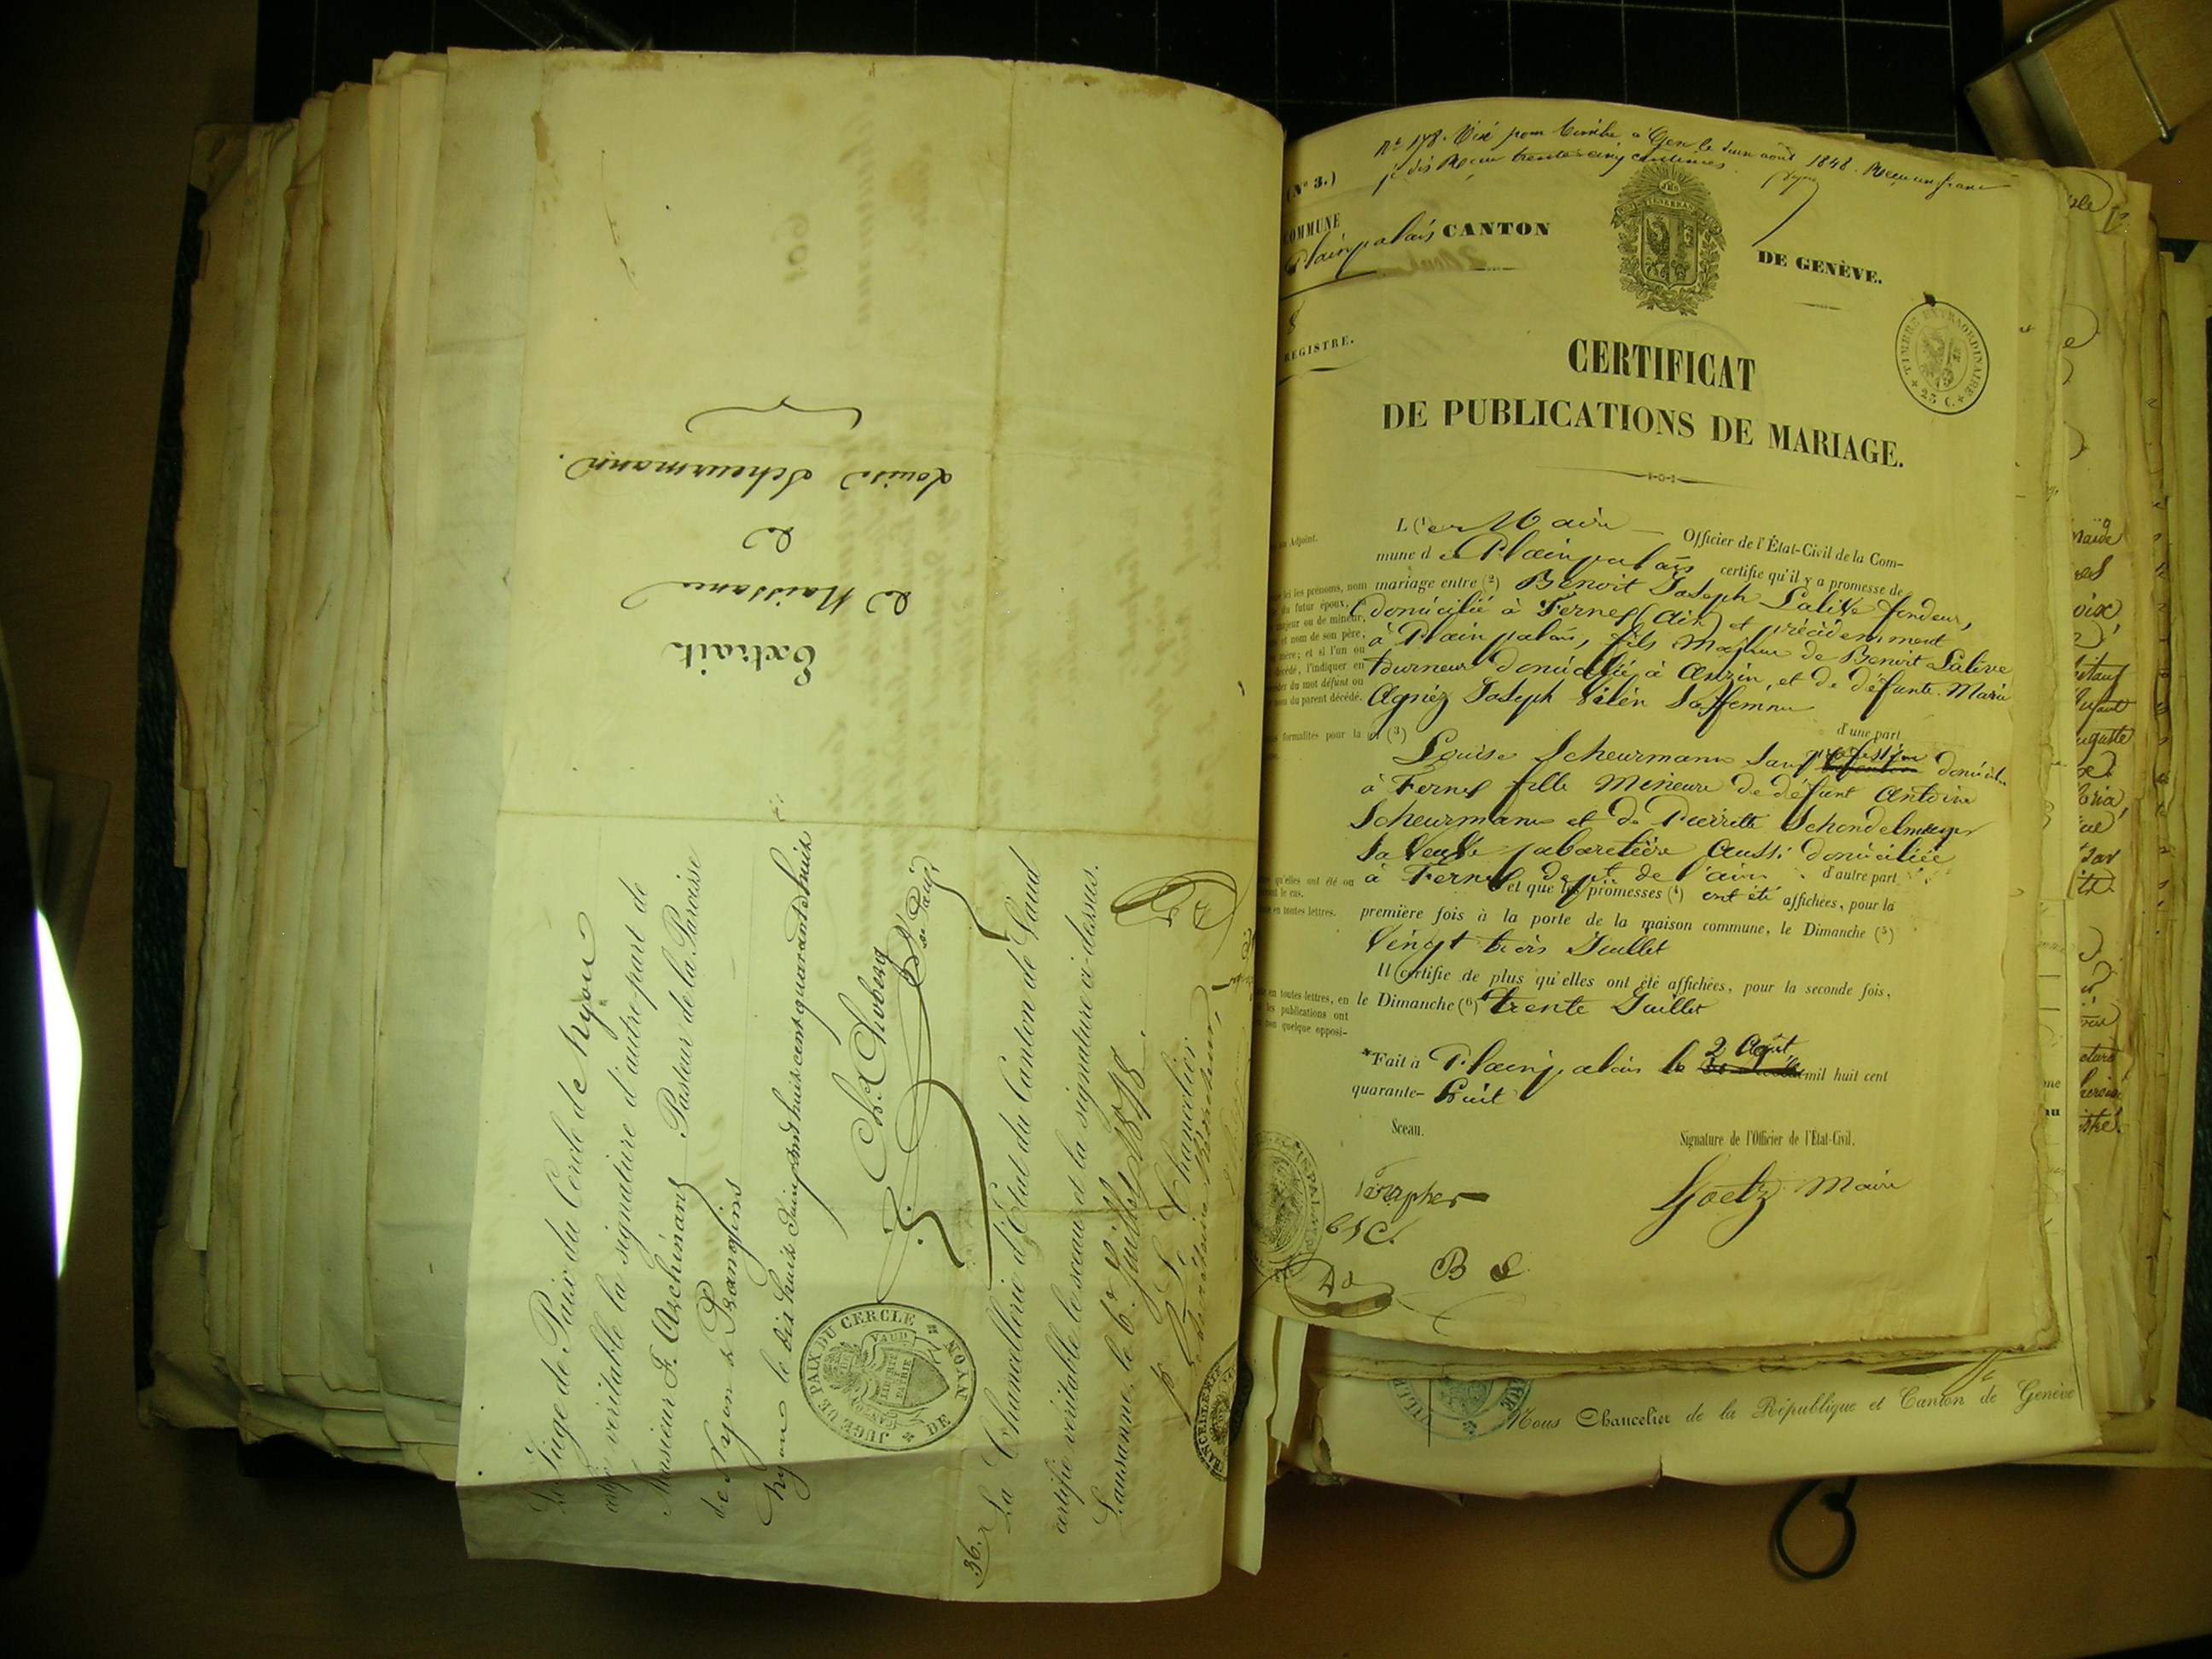 Extrait
de Naissance
de
Louise Scheurmann.
Le Juge de Paix du Cercle de Nyon
certifie véritable la signature d'autre part de
Monsieur F. Archinard Pasteur de la Paroisse
de Nyon & Prangins
Nyon le dix huit Juin mil huit cent quarante huit
de Paix
JUGE DE PAIX DU CERCLE DE NYON
VAUD
LIBERTÉ ET PATRIE
36. La Chancellerie d'État du Canton de Vaud
certifie véritable le sceau et la signature ci-dessus.
Lausanne, le 6e Juillet 1848.
Chancelier
Nº 178. Visé pour timbre à Gex le deux août 1848. Reçu un franc
dix Reçu trente cinq centimes
(Nº 3.)
COMMUNE
Plainpalais CANTON
DE GENÈVE.
REGISTRE.
TIMBRE EXTRAORDINAIRE
25 C.
CERTIFICAT
DE PUBLICATIONS DE MARIAGE.
L(1)e Maire Officier de l'État-Civil de la Com-
ou Adjoint.
mune de Plainpalais certifie qu'il y a promesse de
mariage entre (2) Benoit Joseph Lalive fondeur,
ici les prénoms, nom
du futur époux,
majeur ou de mineur,
et nom de son père,
mère; et si l'un ou
décédé, l'indiquer en
du mot défunt ou
du parent décédé.
domicilié à Ferney (Ain) et précédemment
à Plainpalais, fils Majeur de Benoit Lalive
tourneur domicilié à Anzin, et de défunte Marie
Agnèz Joseph Vilén Sa femme
d'une part
formalités pour la
et (3)
Louise Scheurmann Sans profession domicil.
à Ferney fille Mineure de défunt Antoine
Scheurmann et de Pierrette Schondelmeyer
Sa Veuve cabaretière Aussi domiciliée
à Ferney dept. de l'ain d'autre part
qu'elles ont été ou
et que les promesses (4) ont été affichées, pour la
en toutes lettres.
première fois à la porte de la maison commune, le Dimanche (5)
Vingt trois Juillet
Il certifie de plus qu'elles ont été affichées, pour la seconde fois,
en toutes lettres, en
les publications ont
non quelque opposi-
le Dimanche (6) trente Juillet
Fait à Plainpalais le 2 Août mil huit cent
quarante- huit
Sceau.
Signature de l'Officier de l'État-Civil.
Goetz Maire
B L
Nous Chancelier de la République et Canton de Genève